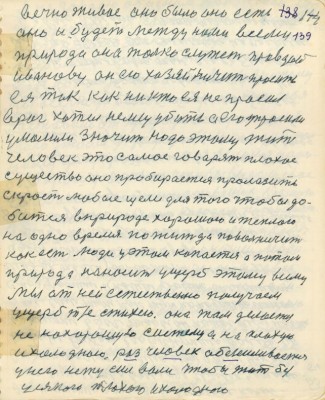 вечно живое оно было оно есть 138 144
оно и будет между нами всеми 139
природа она только служит правдой
Иванову он его хозяйничит просить
ся так как никто ся не просил
враг хотел нему убить а его просили
умолили значит надо этому жить
человек это самое говорят плохое
существо оно пробирается пролазить
скрость любые щели для того чтобы до-
битися в природе хорошого и теплого
на одно время пожить да
как есть люди у этом копается а потом
природа наносит ущерб этому всему
Мы от ней естественно получаем
ущерб те стихею, она там делается
не на хорошую систему а на плохую
и холодною, раз человек обессиливается
у него нету сил воли чтобы жить бу
условного плохого и холодного